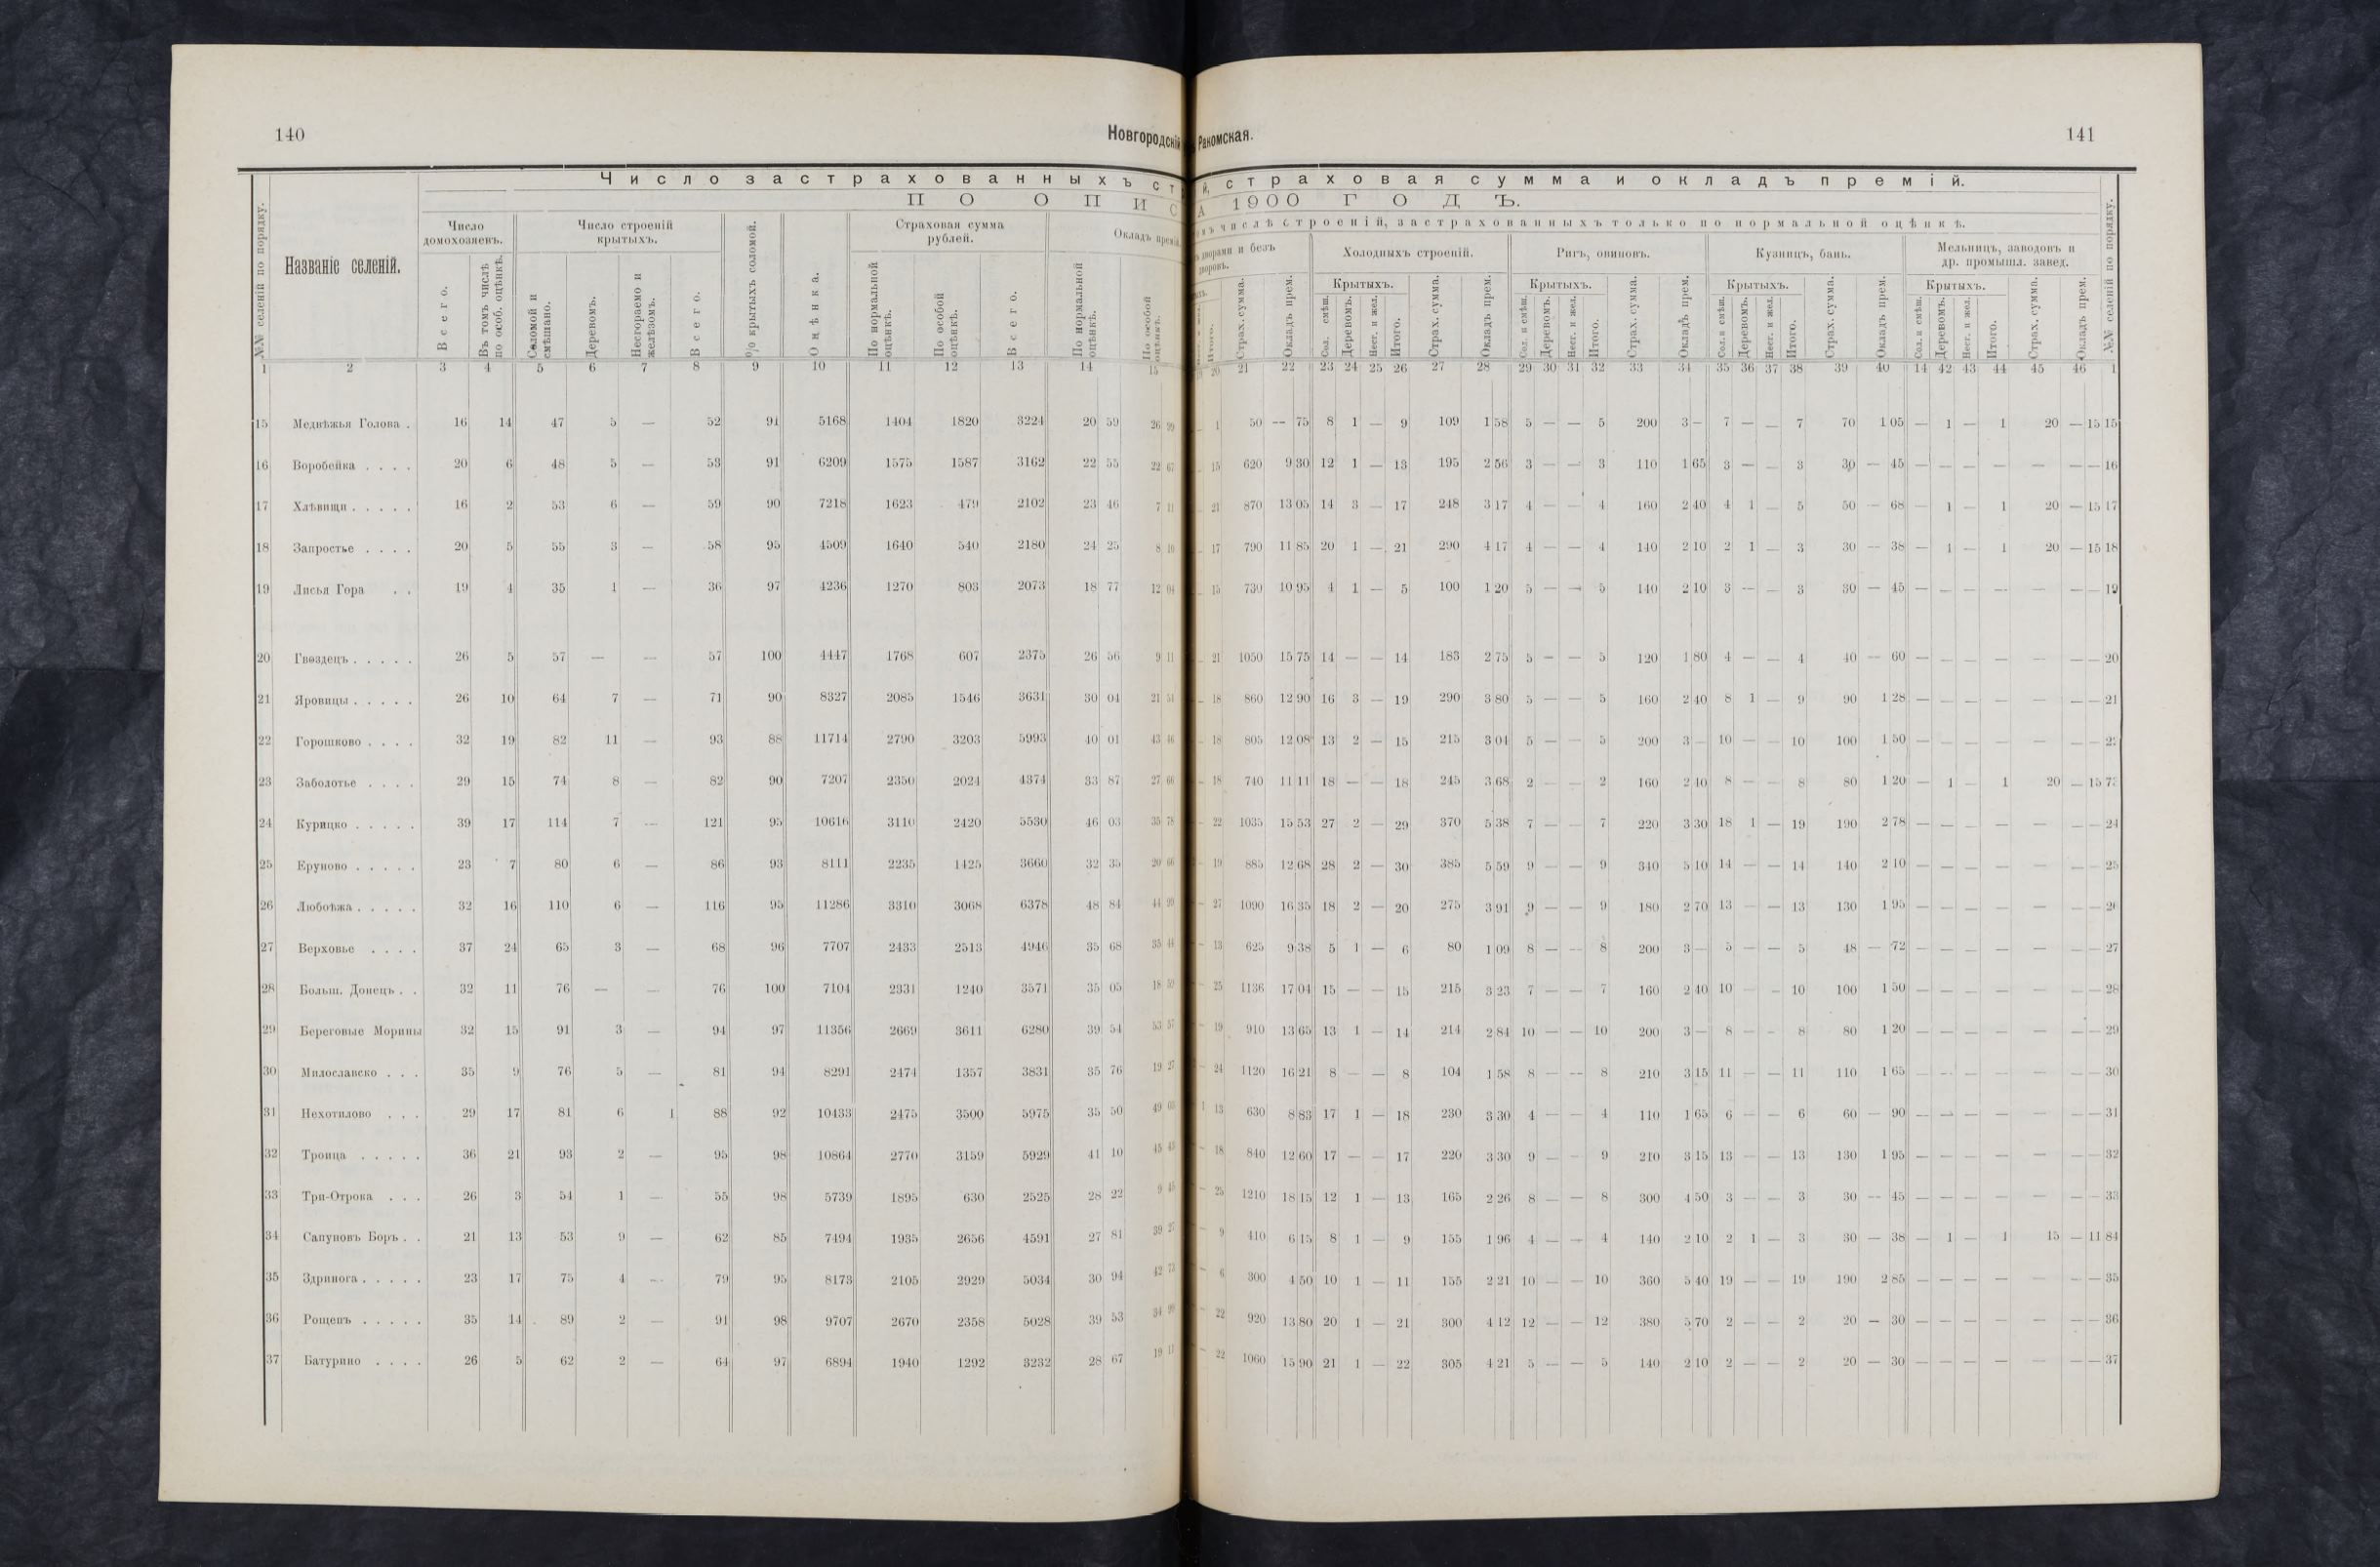 140
Новгородскій
Число застрахованныхъ
ПО ОПИС
№№ селеній по порядку.
Названіе селеній.
Число домохозяевъ.
Всего.
Въ томъ числѣ по особ. оцѣнкѣ.
Число строеній крытыхъ.
Соломой и смѣшано.
Деревомъ.
Несгораемо и желѣзомъ.
Всего.
% крытыхъ соломой.
Оцѣнка.
Страховая сумма рублей.
По нормальной оцѣнкѣ.
По особой оцѣнкѣ.
Всего.
Окладъ премій
По нормальной оцѣнкѣ.
По особой оцѣнкѣ.
1 2 3 4 5 6 7 8 9 10 11 12 13 14 15
15 Медвѣжья Голова . 16 14 47 5 — 52 91 5168 1404 1820 3224 20 59 26 99
16 Воробейка . . . . 20 6 48 5 — 53 91 6209 1575 1587 3162 22 55 22 67
17 Хлѣвищи . . . . . 16 2 53 6 — 59 90 7218 1623 479 2102 23 46 7 11
18 Запростье . . . . 20 5 55 3 — 58 95 4509 1640 540 2180 24 25 8 10
19 Лисья Гора . . 19 4 35 1 — 36 97 4236 1270 803 2073 18 77 12 04
20 Гвоздецъ . . . . . 26 5 57 — — 57 100 4447 1768 607 2375 26 56 9 11
21 Яровицы . . . . . 26 10 64 7 — 71 90 8327 2085 1546 3631 30 04 21 51
22 Горошково . . . . 32 19 82 11 — 93 88 11714 2790 3203 5993 40 01 43 46
23 Заболотье . . . . 29 15 74 8 — 82 90 7207 2350 2024 4374 33 87 27 60
24 Курицко . . . . . 39 17 114 7 — 121 95 10616 3110 2420 5530 46 03 35 78
25 Еруново . . . . . 23 7 80 6 — 86 93 8111 2235 1425 3660 32 35 20 66
26 Любоѣжа . . . . . 32 16 110 6 — 116 95 11286 3310 3068 6378 48 84 44 99
27 Верховье . . . . 37 24 65 3 — 68 96 7707 2433 2513 4946 35 68 35 44
28 Больш. Донецъ . . 32 11 76 — — 76 100 7104 2331 1240 3571 35 05 18 59
29 Береговые Морины 32 15 91 3 — 94 97 11356 2669 3611 6280 39 54 53 57
30 Милославско . . . 35 9 76 5 — 81 94 8291 2474 1357 3831 35 76 19 27
31 Нехотилово . . . 29 17 81 6 1 88 92 10433 2475 3500 5975 35 50 49
32 Троица . . . . . 36 21 93 2 — 95 98 10864 2770 3159 5929 41 10 45 45
33 Три-Отрока . . . 26 3 54 1 — 55 98 5739 1895 630 2525 28 22 9 45
34 Сапуновъ Боръ . . 21 13 53 9 — 62 85 7494 1935 2656 4591 27 81 39 27
35 Здринога . . . . . 23 17 75 4 — 79 95 8173 2105 2929 5034 30 94 42 73
36 Рощепъ . . . . . 35 14 89 2 — 91 98 9707 2670 2358 5028 39 53 34 99
37 Батурино . . . . 26 5 62 2 — 64 97 6894 1940 1292 3232 28 67 19 17
Ракомская.
141
страховая сумма и окладъ премій.
А 1900 ГОДЪ.
числѣ строеній, застрахованныхъ только по нормальной оцѣнкѣ.
дворами и безъ дворовъ.
Итого.
Страх. сумма.
Окладъ прем.
Холодныхъ строеній.
Крытыхъ.
Сол. смѣш.
Деревомъ.
Несг. и жел.
Итого.
Страх. сумма.
Окладъ прем.
Ригъ, овиновъ.
Крытыхъ.
Сол. и смѣш.
Деревомъ.
Несг. и жел.
Итого.
Страх. сумма.
Окладъ прем.
Кузницъ, бань.
Крытыхъ.
Сол. и смѣш.
Деревомъ.
Несг. и жел.
Итого.
Страх. сумма.
Окладъ прем.
Мельницъ, заводовъ и др. промышл. завед.
Крытыхъ.
Сол. и смѣш.
Деревомъ.
Несг. и жел.
Итого.
Страх. сумма.
Окладъ прем.
№№ селеній по порядку.
20 21 22 23 24 25 26 27 28 29 30 31 32 33 34 35 36 37 38 39 40 14 42 43 44 45 46 1
1 50 — 75 8 1 — 9 109 1 58 5 — — 5 200 3 — 7 — — 7 70 1 05 — 1 — 1 20 — 15 15
15 620 9 30 12 1 — 13 195 2 56 3 — — 3 110 1 65 3 — — 3 30 — 45 — — — — — — — 16
21 870 13 05 14 3 — 17 248 3 17 4 — — 4 160 2 40 4 1 — 5 50 — 68 — 1 — 1 20 — 15 17
17 790 11 85 20 1 — 21 290 4 17 4 — — 4 140 2 10 2 1 — 3 30 — 38 — 1 — 1 20 — 15 18
15 730 10 95 4 1 — 5 100 1 20 5 — — 5 140 2 10 3 — — 3 30 — 45 — — — — — — — 19
21 1050 15 75 14 — — 14 183 2 75 5 — — 5 120 1 80 4 — — 4 40 — 60 — — — — — — — 20
18 860 12 90 16 3 — 19 290 3 80 5 — — 5 160 2 40 8 1 — 9 90 1 28 — — — — — — — 21
18 805 12 08 13 2 — 15 215 3 04 5 — — 5 200 3 — 10 — — 10 100 1 50 — — — — — — — 22
18 740 11 11 18 — — 18 245 3 68 2 — — 2 160 2 40 8 — — 8 80 1 20 — 1 — 1 20 — 15
22 1035 15 53 27 2 — 29 370 5 38 7 — — 7 220 3 30 18 1 — 19 190 2 78 — — — — — — — 24
19 885 12 68 28 2 — 30 385 5 59 9 — — 9 340 5 10 14 — — 14 140 2 10 — — — — — — — 25
27 1090 16 35 18 2 — 20 275 3 91 9 — — 9 180 2 70 13 — 13 130 1 95 — — — — — — — 26
13 625 9 38 5 1 — 6 80 1 09 8 — — 8 200 3 — 5 — — 5 48 — 72 — — — — — — — 27
25 1136 17 04 15 — — 15 215 3 23 7 — — 7 160 2 40 10 — 10 100 1 50 — — — — — — — 28
19 910 13 65 13 1 — 14 214 2 84 10 — — 10 200 3 — 8 — — 8 80 1 20 — — — — — — — 29
24 1120 16 21 8 — — 8 104 1 58 8 — — 8 210 3 15 11 — — 11 110 1 65 — — — — — — — 30
1 13 630 8 83 17 1 — 18 230 3 30 4 — — 4 110 1 65 6 — — 6 60 — 90 — — — — — — — 31
18 840 12 60 17 — — 17 220 3 30 9 — — 9 210 3 15 13 — — 13 130 1 95 — — — — — — — 32
25 1210 18 15 12 1 — 13 165 2 26 8 — — 8 300 4 50 3 — — 3 30 — 45 — — — — — — — 33
9 410 6 15 8 1 — 9 155 1 96 4 — — 4 140 2 10 2 1 — 3 30 — 38 — 1 — 1 15 — 11 84
6 300 4 50 10 1 — 11 155 2 21 10 — — 10 360 5 40 19 — — 19 190 2 85 — — — — — — — 35
22 920 13 80 20 1 — 21 300 4 12 12 — — 12 380 5 70 2 — — 2 20 — 30 — — — — — — — 36
22 1060 15 90 21 1 — 22 305 4 21 5 — — 5 140 2 10 2 — — 2 20 — 30 — — — — — — — 37